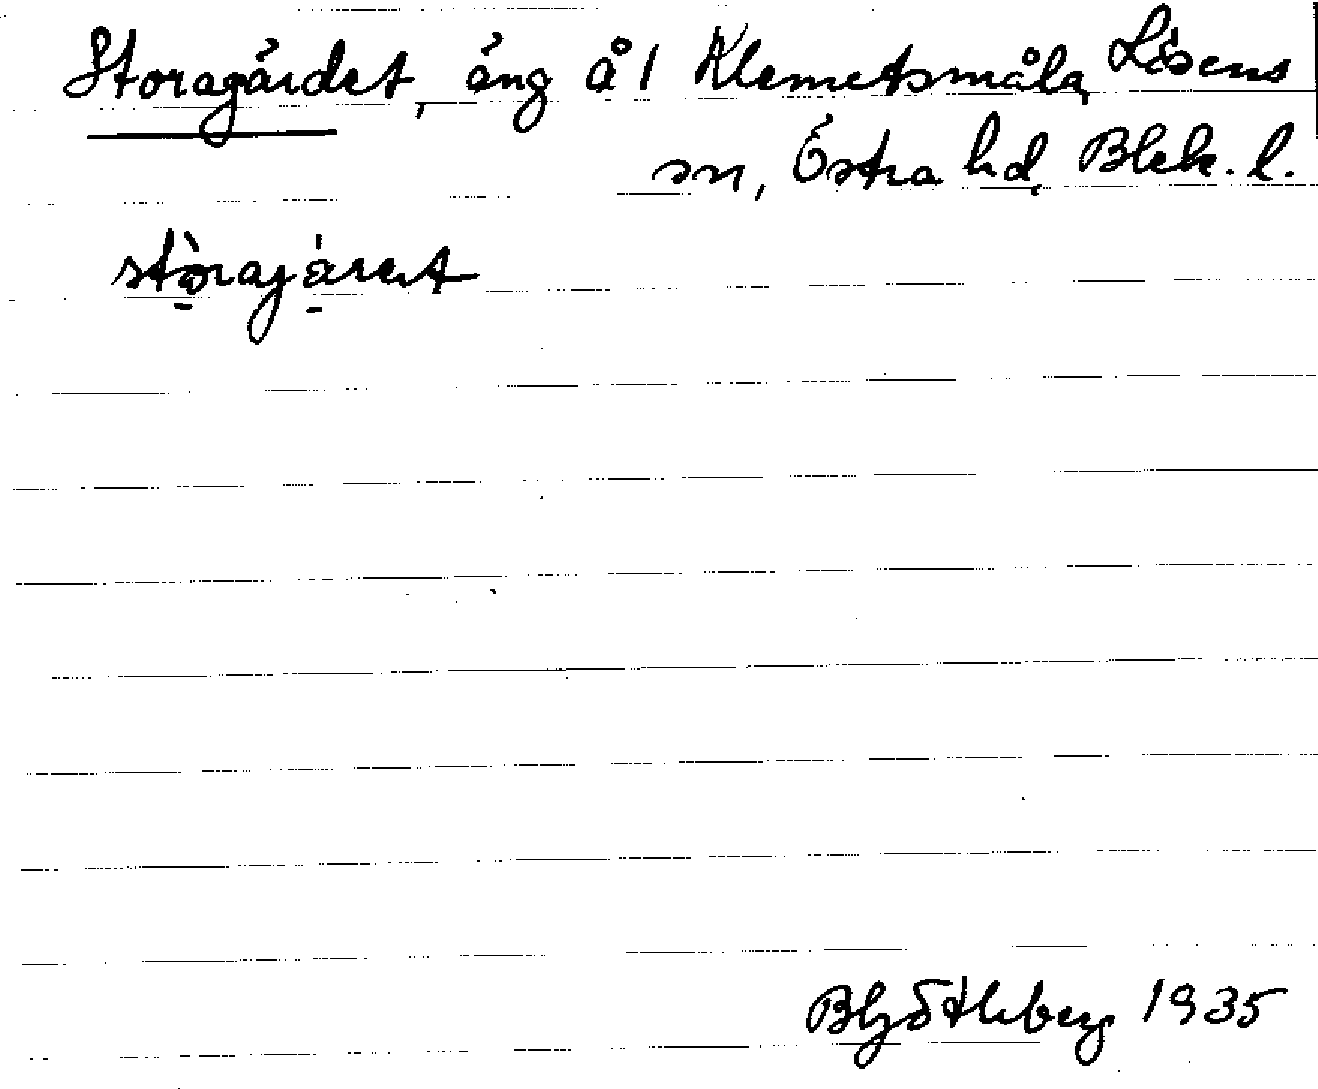 Storagärdet, äng å 1 Klemetsmåla, Lösens
sn, Östra hd, Blek. l.
stòrajä́ret
1935